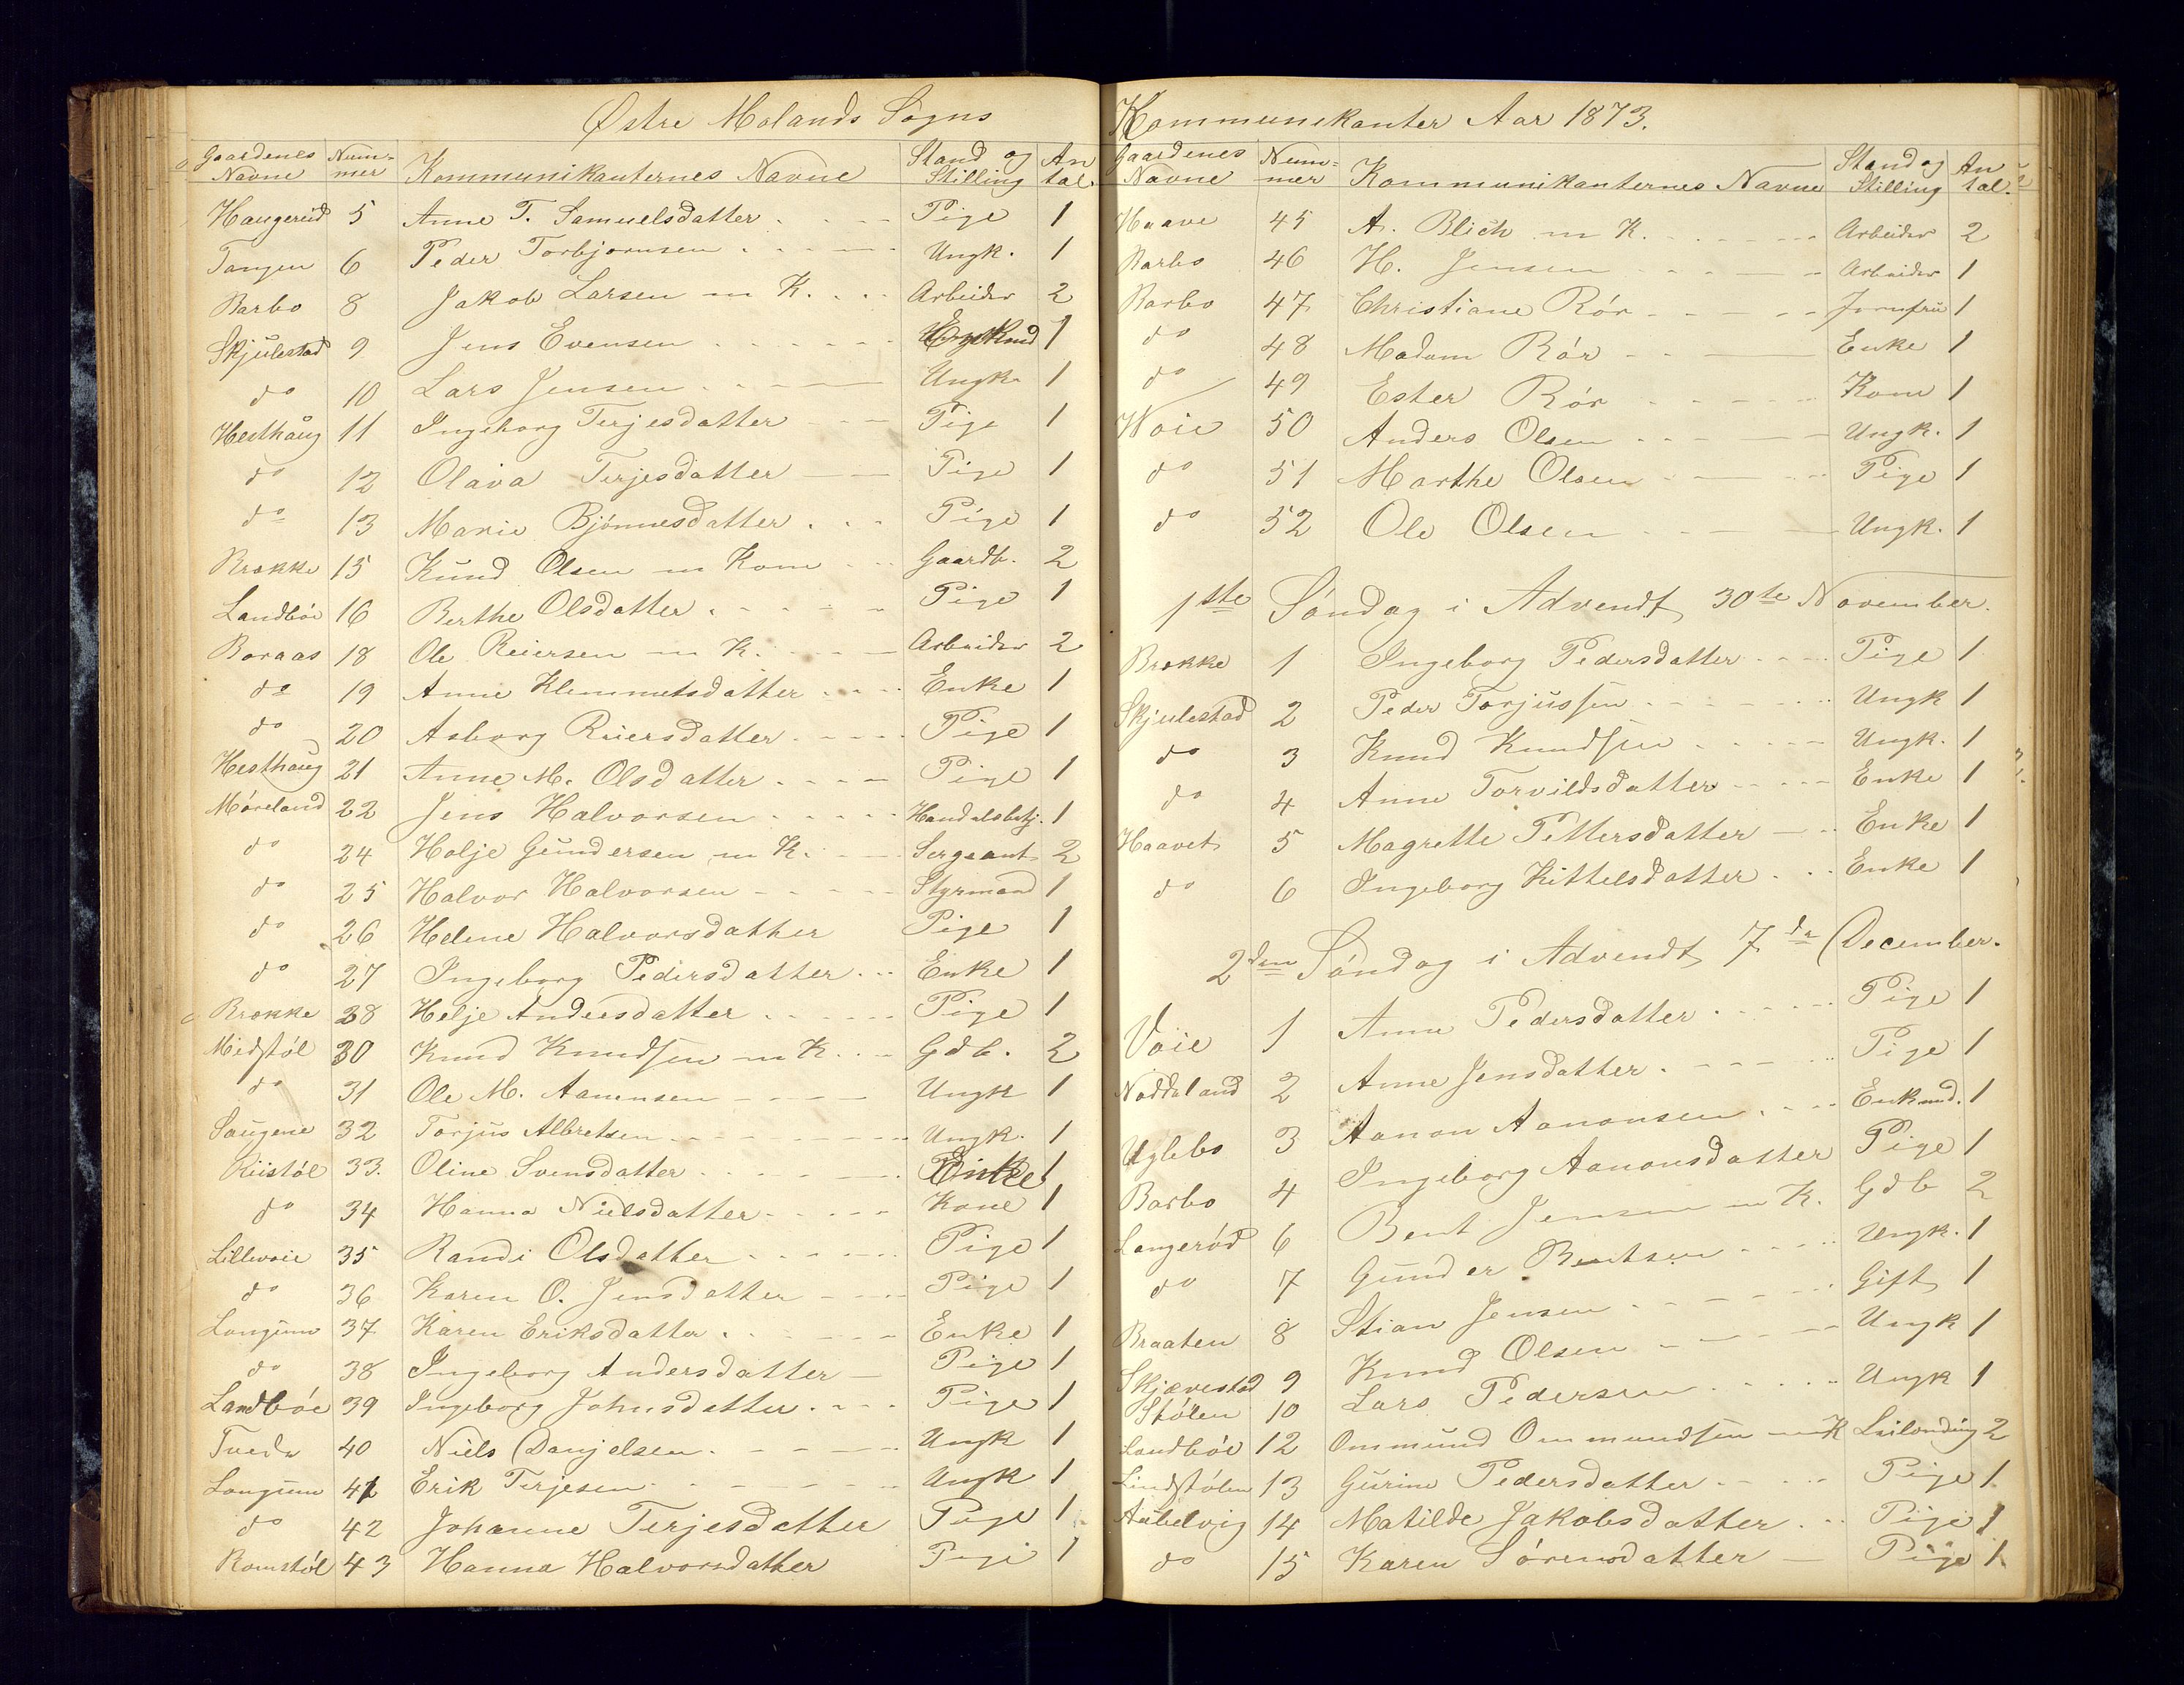 Østre Molands Sogns
Gaardenes Navne | Num-mer | Kommunikanternes Navne | Stand og Stilling | An tal.
Haugerud 5 Anne T. Samuelsdatter Pige 1
Tangen 6 Peder Torbjornsen Ungk. 1
Barbo 8 Jakob Larsen m K. Arbeider 2
Skjulestad 9 Jens Evensen 1
do 10 Lars Jensen Ungk 1
Hesthaug 11 Ingeborg Terjesdatter Pige 1
do 12 Olava Terjesdatter Pige 1
do 13 Marie Bjönnesdatter Pige 1
Brokke 15 Kund Olsen m Kone Gaardb. 2
Landböe 16 Berthe Olsdatter Pige 1
Boraas 18 Ole Reiersen m K. Arbeider 2
do 19 Anne Klemmetsdatter Enke 1
do 20 Asborg Reiersdatter Pige 1
Hesthaug 21 Anne M. Olsdatter Pige 1
Möreland 22 Jens Halvorsen Handelsbetj. 1
do 24 Holje Gundersen m K. Sergeant 2
do 25 Halvor Halvorsen Styrmand 1
do 26 Helene Halvorsdatter Pige 1
do 27 Ingeborg Pedersdatter Enke 1
Brokke 28 Helje Andersdatter Pige 1
Midstöl 30 Knud Knudsen m K. Gdb. 2
do 31 Ole M. Aanensen Ungk 1
Saugene 32 Torjus Albretsen Ungk. 1
Kiistöl 33. Oline Svensdatter Enke 1
do 34 Hanna Nielsdatter Kone 1
Lillevoie 35 Randi Olsdatter Pige 1
do 36 Karen O. Jensdatter Pige 1
Longum 37 Karen Eriksdatter Enke 1
do 38 Ingeborg Andersdatter Pige 1
Landböe 39 Ingeborg Johnsdatter Pige 1
Tvede 40 Niels Danjelsen Ungk 1
Longum 41 Erik Terjesen Ungk 1
do 42 Johanne Terjesdatter Pige 1
Romstöl 43 Hanna Halvorsdatter Pige 1
Kommunikanter Aar 1873.
Gaardenes Navne | Num-mer | Kommunikanternes Navne | Stand og Stilling | An tal.
Haave 45 A. Blich m K. Arbeider 2
Barbo 46 H. Jensen Arbeider 1
Barbo 47 Christiane Rör Jomfru 1
do 48 Madam Rör Enke 1
do 49 Ester Rör Kone 1
Woie 50 Anders Olsen Ungk. 1
do 51 Marthe Olsen Pige 1
do 52 Ole Olsen Ungk. 1
1ste Söndag i Advendt 30te November.
Brokke 1 Ingeborg Pedersdatter Pige 1
Skjulestad 2 Peder Torjussen Ungk 1
do 3 Knud Knudsen Ungk. 1
do 4 Anne Torvildsdatter Enke 1
Haavet 5 Magrette Pettersdatter Enke 1
do 6 Ingeborg Kittelsdatter Enke 1
2den Söndag i Advendt 7de December.
Voie 1 Anne Pedersdatter Pige 1
Noddeland 2 Anne Jensdatter Pige 1
Uglebo 3 Aanon Aanonsen Enkmd. 1
Barbo 4 Ingeborg Aanonsdatter Pige 1
Langeröd 6 Bent Jensen m K. Gdb 2
do 7 Gunder Bentsen Ungk. 1
Braaten 8 Stian Jensen Gift 1
Skjævestad 9 Knud Olsen Ungk 1
Stölen 10 Lars Pedersen Ungk 1
Landböe 12 Ommund Ommundsen m K Leilending 2
Lindstölen 13 Gurine Pedersdatter Pige 1
Aubelvig 14 Matilde Jakobsdatter Pige 1
do 15 Karen Sörensdatter Pige 1